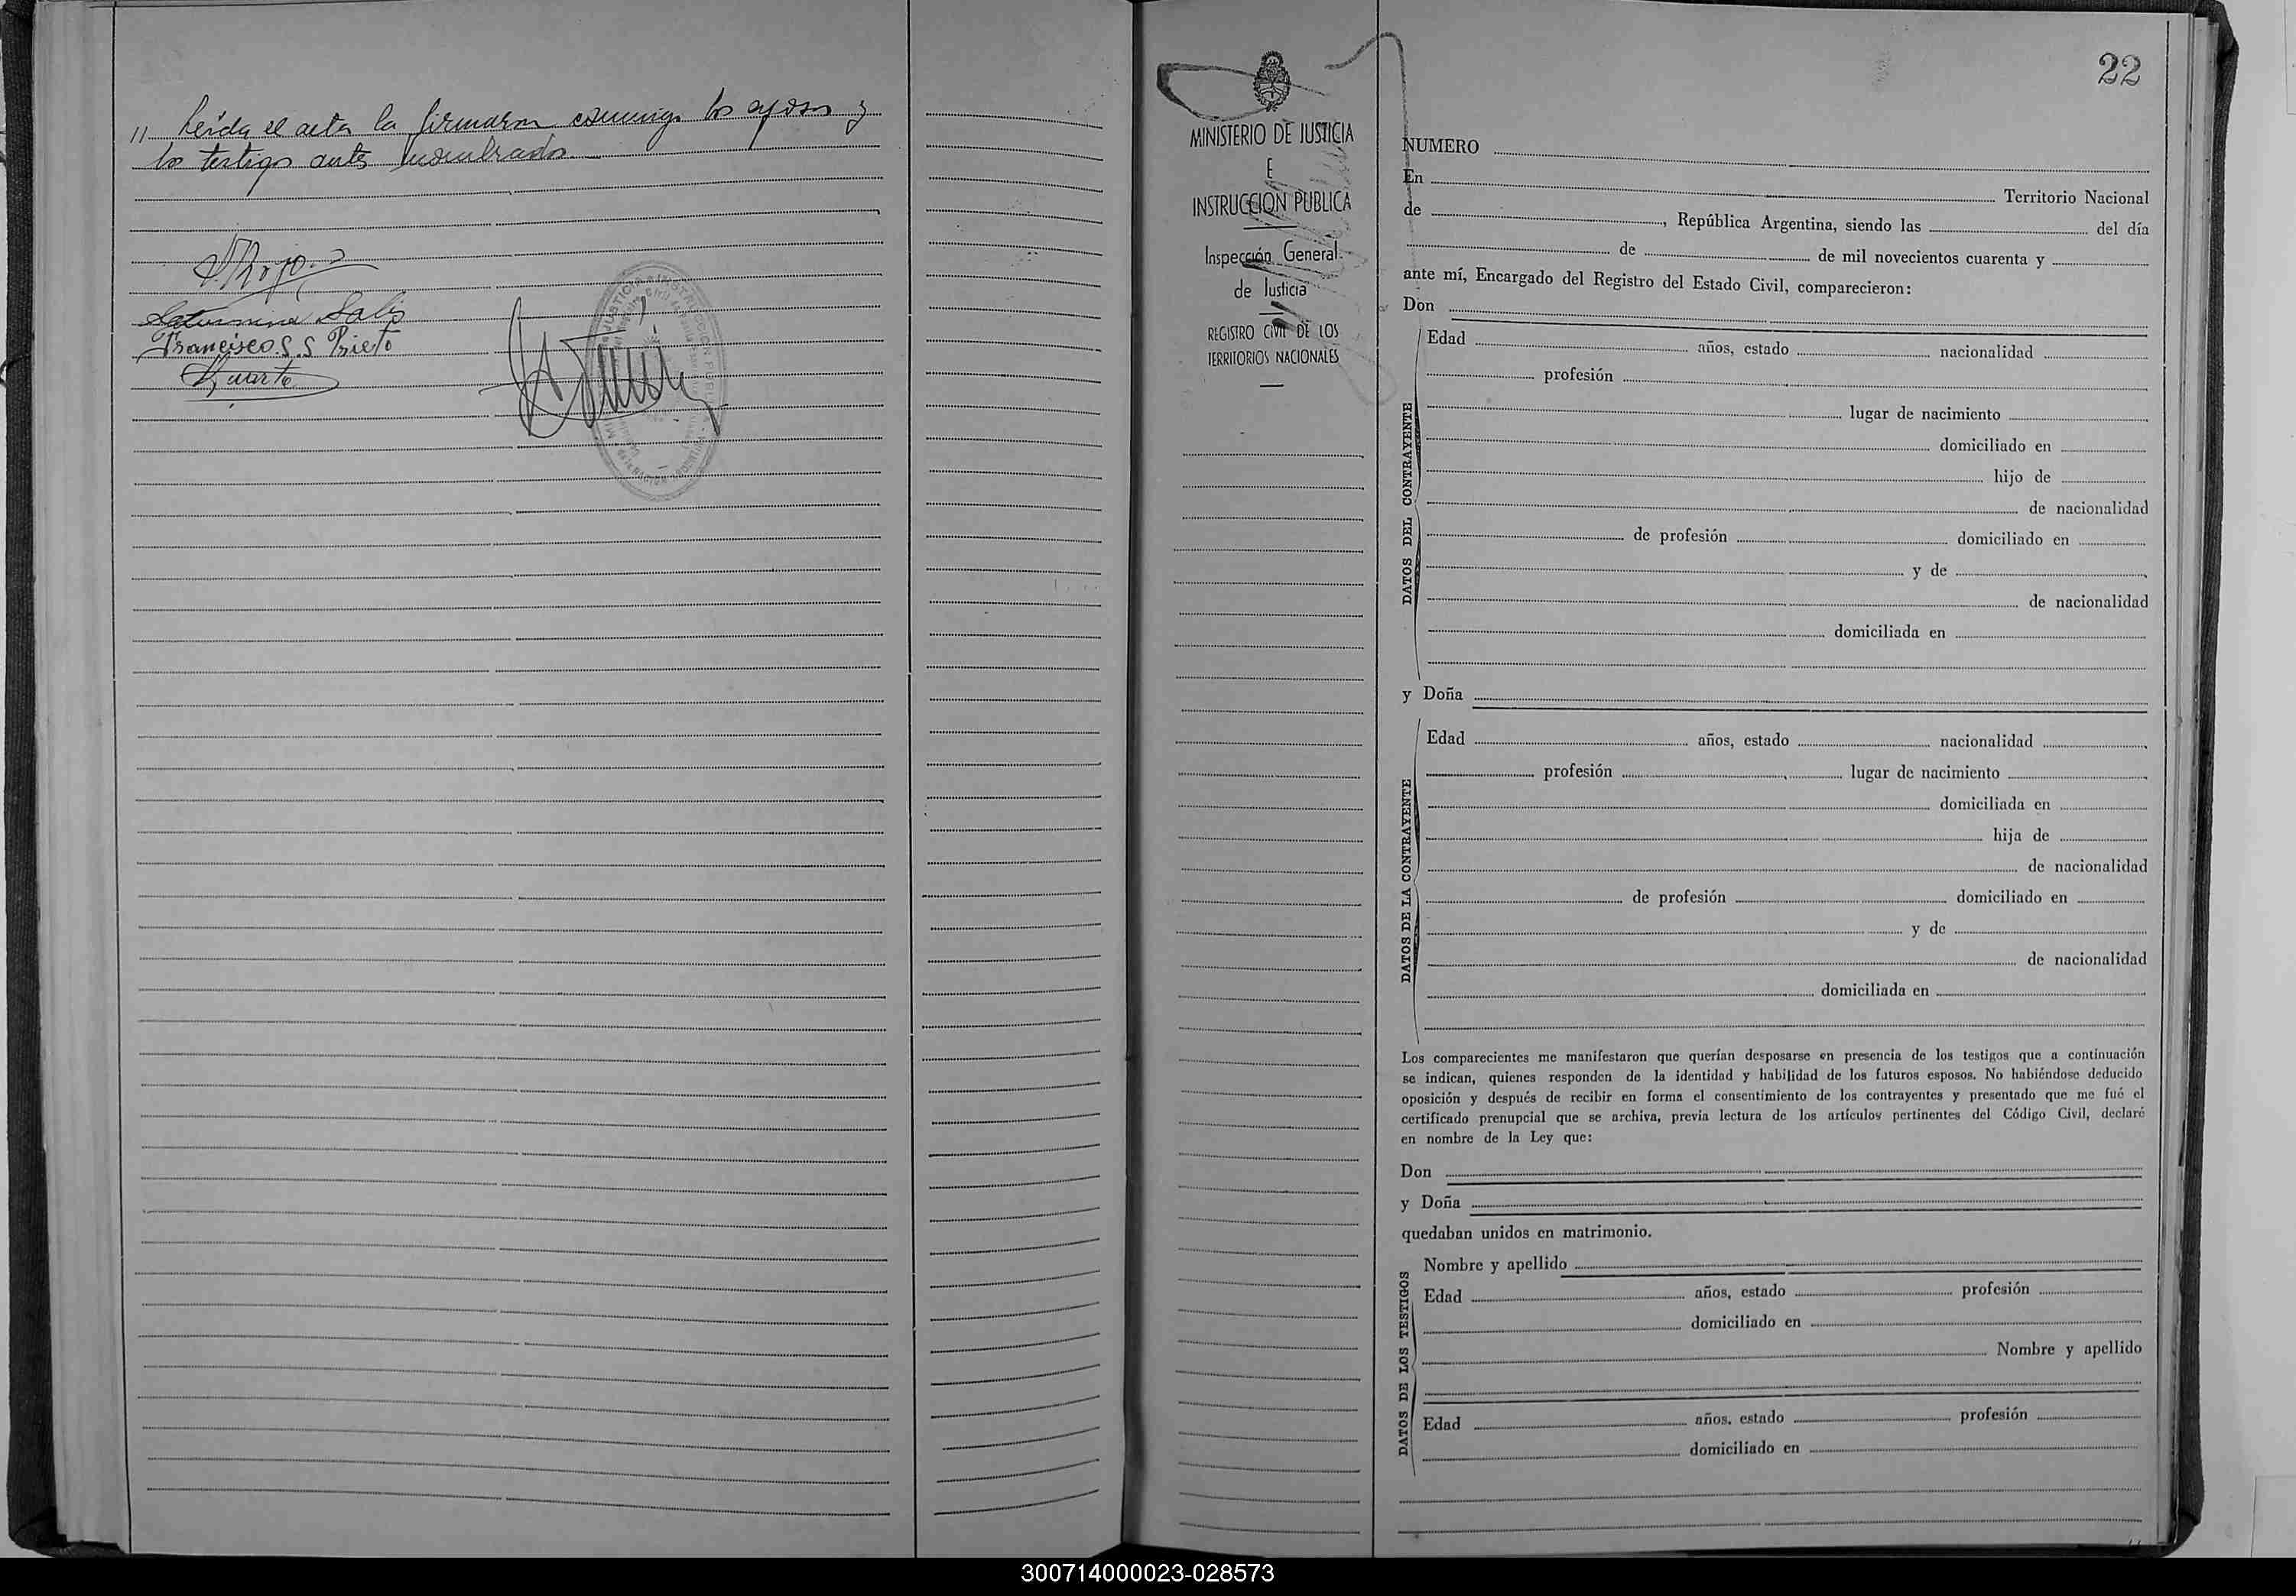 " Leída el acta la firmaron conmigo los esposos y
los testigos antes nombrados.
Saturnina Salis
Francisco S. S Prieto
Duarte
MINISTERIO DE JUSTICIA
E
INSTRUCCION PUBLICA
Inspección General
de Justicia
REGISTRO CIVIL DE LOS
TERRITORIOS NACIONALES
22
NUMERO
En Territorio Nacional
de , República Argentina, siendo las del día
de de mil novecientos cuarenta y
ante mí, Encargado del Registro del Estado Civil, comparecieron:
Don
DATOS DEL CONTRAYENTE
Edad años, estado nacionalidad
profesión
lugar de nacimiento
domiciliado en
hijo de
de nacionalidad
de profesión domiciliado en
y de
de nacionalidad
domiciliada en
y Doña
DATOS DE LA CONTRAYENTE
Edad años, estado nacionalidad
profesión lugar de nacimiento
domiciliada en
hija de
de nacionalidad
de profesión domiciliado en
y de
de nacionalidad
domiciliada en
Los comparecientes me manifestaron que querían desposarse en presencia de los testigos que a continuación
se indican, quienes responden de la identidad y habilidad de los futuros esposos. No habiéndose deducido
oposición y después de recibir en forma el consentimiento de los contrayentes y presentado que me fué el
certificado prenupcial que se archiva, previa lectura de los artículos pertinentes del Código Civil, declaré
en nombre de la Ley que:
Don
y Doña
quedaban unidos en matrimonio.
DATOS DE LOS TESTIGOS
Nombre y apellido
Edad años, estado profesión
domiciliado en
Nombre y apellido
Edad años, estado profesión
domiciliado en
300714000023-028573